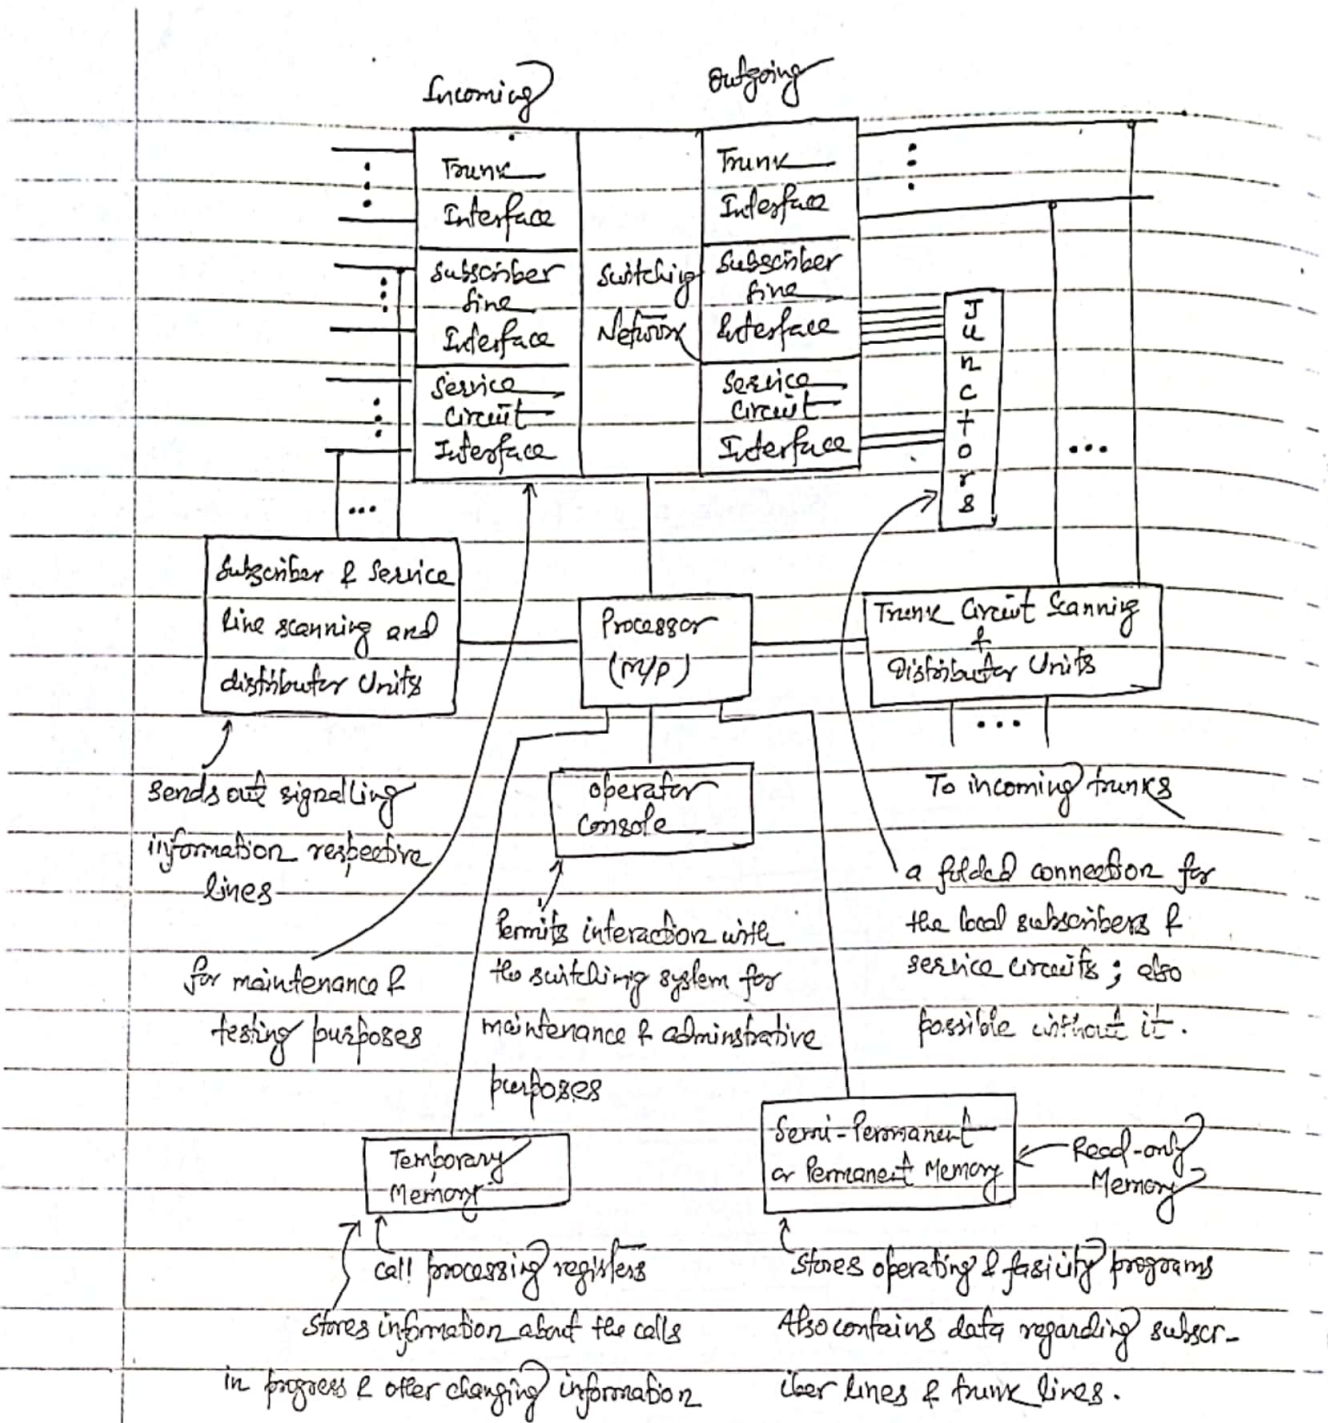 Incoming
Outgoing
Trunk
Interface
Subscriber
line
Interface
Service
Circuit
Interface
Switching
Network
Trunk
Interface
Subscriber
line
Interface
Service
Circuit
Interface
Junctors
Subscriber & Service
line scanning and
distributor Units
Processor
(M/P)
Trunk Circuit Scanning
&
Distributor Units
sends out signalling
information respective
lines
Operator
Console
To incoming trunks
for maintenance &
testing purposes
Permits interaction with
the switching system for
maintenance & adminstrative
purposes
a folded connection for
the local subscribers &
service circuits ; also
possible without it.
Temporary
Memory
Semi-Permanent
or Permanent Memory
Read-only
Memory
call processing registers
stores information about the calls
in progress & other changing information
stores operating & fasicity programs
Also contains data regarding subscr-
iber lines & trunk lines.